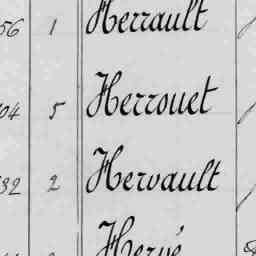 56 1 Herrault
04 5 Herrouet
32 2 Hervault
Hervé